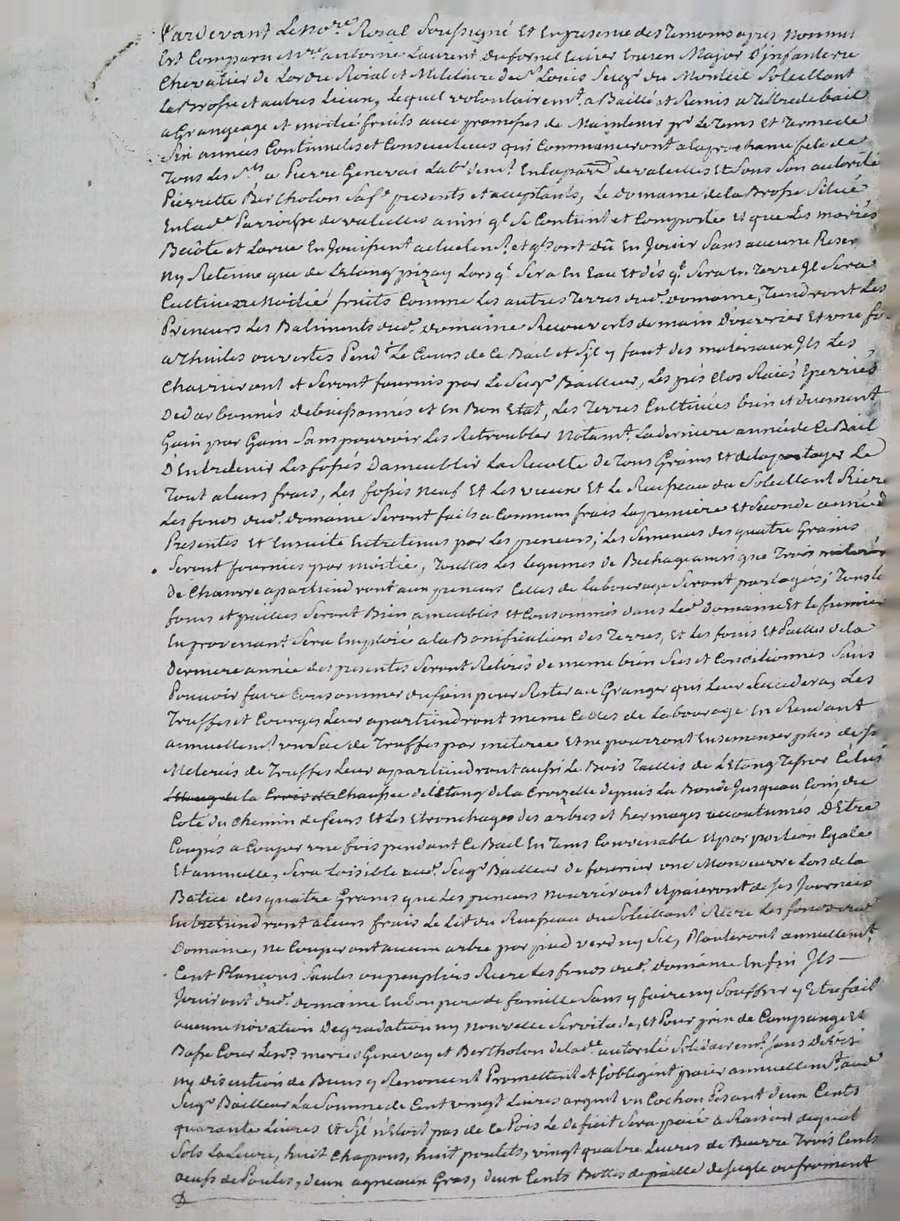 Pardevant Le No.re Royal Soussigné Et En presence des Temoins apres Nommés
Est Comparu M.re antoine Laurent Dufornel Ecuier ancien Major D'infanterie
Chevalier de Lordre Roial et Militaire de S.t Louis Seig.r du Monteil Soleillant
la Brosse et autres Lieux, Lequel volontairem.t a Baillé et Remis a Titre de bail
a Grangeage et moitié fruits avec promesses de Maintenir p.r Le Tems Et Terme de
Six années Continuelles et Consecutives qui Commenceront a la prochaine fete de
Tous les S.ts a Pierre Genevai Lab.r dem.t En la par.se de valeilles Et Sous Son autorité
Pierrette Bertholon Sa f.e presents et acceptants, Le Domaine de la Brosse Situé
En lad.e Parroisse de valeilles ainsi q.l Se Contient et Comporte Et que Les mariés
et Larue En Jouissent actuelem.t et q.ls ont dû En Jouir Sans aucune Reserve
Ny Retenue que de Letang pizay Lors q.l Sera En Eau Et dès q.l Sera En Terre Il Sera
Cultivé a Moitié fruits Comme Les autres Terres dud. domaine, Tiendront Les
Preneurs Les Batiments dud. domaine Recouverts de main D'ouvrier Et une fois
a Thuiles ouvertes Pend.t Le Cours de Ce Bail et S'il y faut des materiaux Ils Les
Charrieront et Seront fournis par Le Seig.r Bailleur, Les prés Clos Raiés Eperriés
Debuissonnés et En Bon Etat, Les Terres Cultivées bien et duement
Gain par Gain Sans pouvoir Les Retroubler Notam.t La derniere année de Ce Bail
D'Entretenir Les fossés D'ameublir La Recolte de Tous Grains Et de la partager Le
Tout a leurs frais, Les fossés Neuf Et Les vieux Et Le Ruisseau du Soleillant Riere
Les fonds dud. domaine Seront faits a Commun frais La premiere et Seconde année
Presentes Et Ensuite Entretenus par Les preneurs, Les Semences des quatre Grains
Seront fournies par moitié, Toutes Les Legumes de Bechage ainsi que Trois
De Chanvre apartiendront aux preneurs Celles de Labourage Seront partagés; Tous Les
foins et pailles Seront Bien ameublés et Consommés dans Led. Domaine Et le fumier
En provenant Sera Emploié a la Bonification des Terres, Et les foins Et Pailles de la
Derniere année des presentes Seront Retirés de meme bien Secs et Conditionnés Sans
Pouvoir faire Consommer du foin pour Rester au Granger qui Leur Succedera, Les
Truffes et Courges Leur apartiendront meme Celles de Labourage En Rendant
annuellem.t un Sac de Truffes par meteree Et ne pourront Ensemenser plus de Six
Meterées de Truffes Leur apartiendront aussi Le Bois Taillis de Letang
la Chaussee de l'Etang de la Croizette depuis La Bonde Jusqu'au Coin du
Coté du Chemin de feurs Et Les Etronchages des arbres et hermages accoutumés D'Etre
Coupés a Couper une fois pendant Ce Bail En Tems Convenable Et par portion Egale
Et annuelle, Sera Loisible aud. Seig.r Bailleur de fournir une Manoeuvre Lors de la
Batice des quatre Grains que Les preneurs Nourriront et paieront de Ses Journées
Entretiendront a leurs frais Le Lit du Ruisseau du Soleillant Riere Les fonds dud.
Domaine, Ne Couperont aucun arbre par pied verd ny Sec, Planteront annuellem.t
Cent Plançons Saules ou peupliers Riere Les fonds dud. domaine Enfin Ils
Jouiront dud. domaine En bon pere de famille Sans y faire ny Souffrir y Etre fait
aucune Novation Degradation ny nouvelle Servitude, et Pour prix de Compange Et
Basse Cour Lesd. mariés Genevay et Bertholon de lad.te autorité Solidairem.t Sans Division
ny discution de Biens y Renoncent Promettent et S'obligent paier annuellem.t aud.
Seig.r Bailleur La Somme de Cent vingt Livres argent un Cochon Pesant deux Cents
quarante Livres et S'il n'Etoit pas de Ce Pois Le Deficit Sera paié a Raison de quat
Sols La Livre, huit Chapons, huit poulets, vingt quatre Livres de Beurre Trois Cents
oeufs de Poules, deux agneaux Gras, deux Cents Bottes de paille de Seigle ou froment